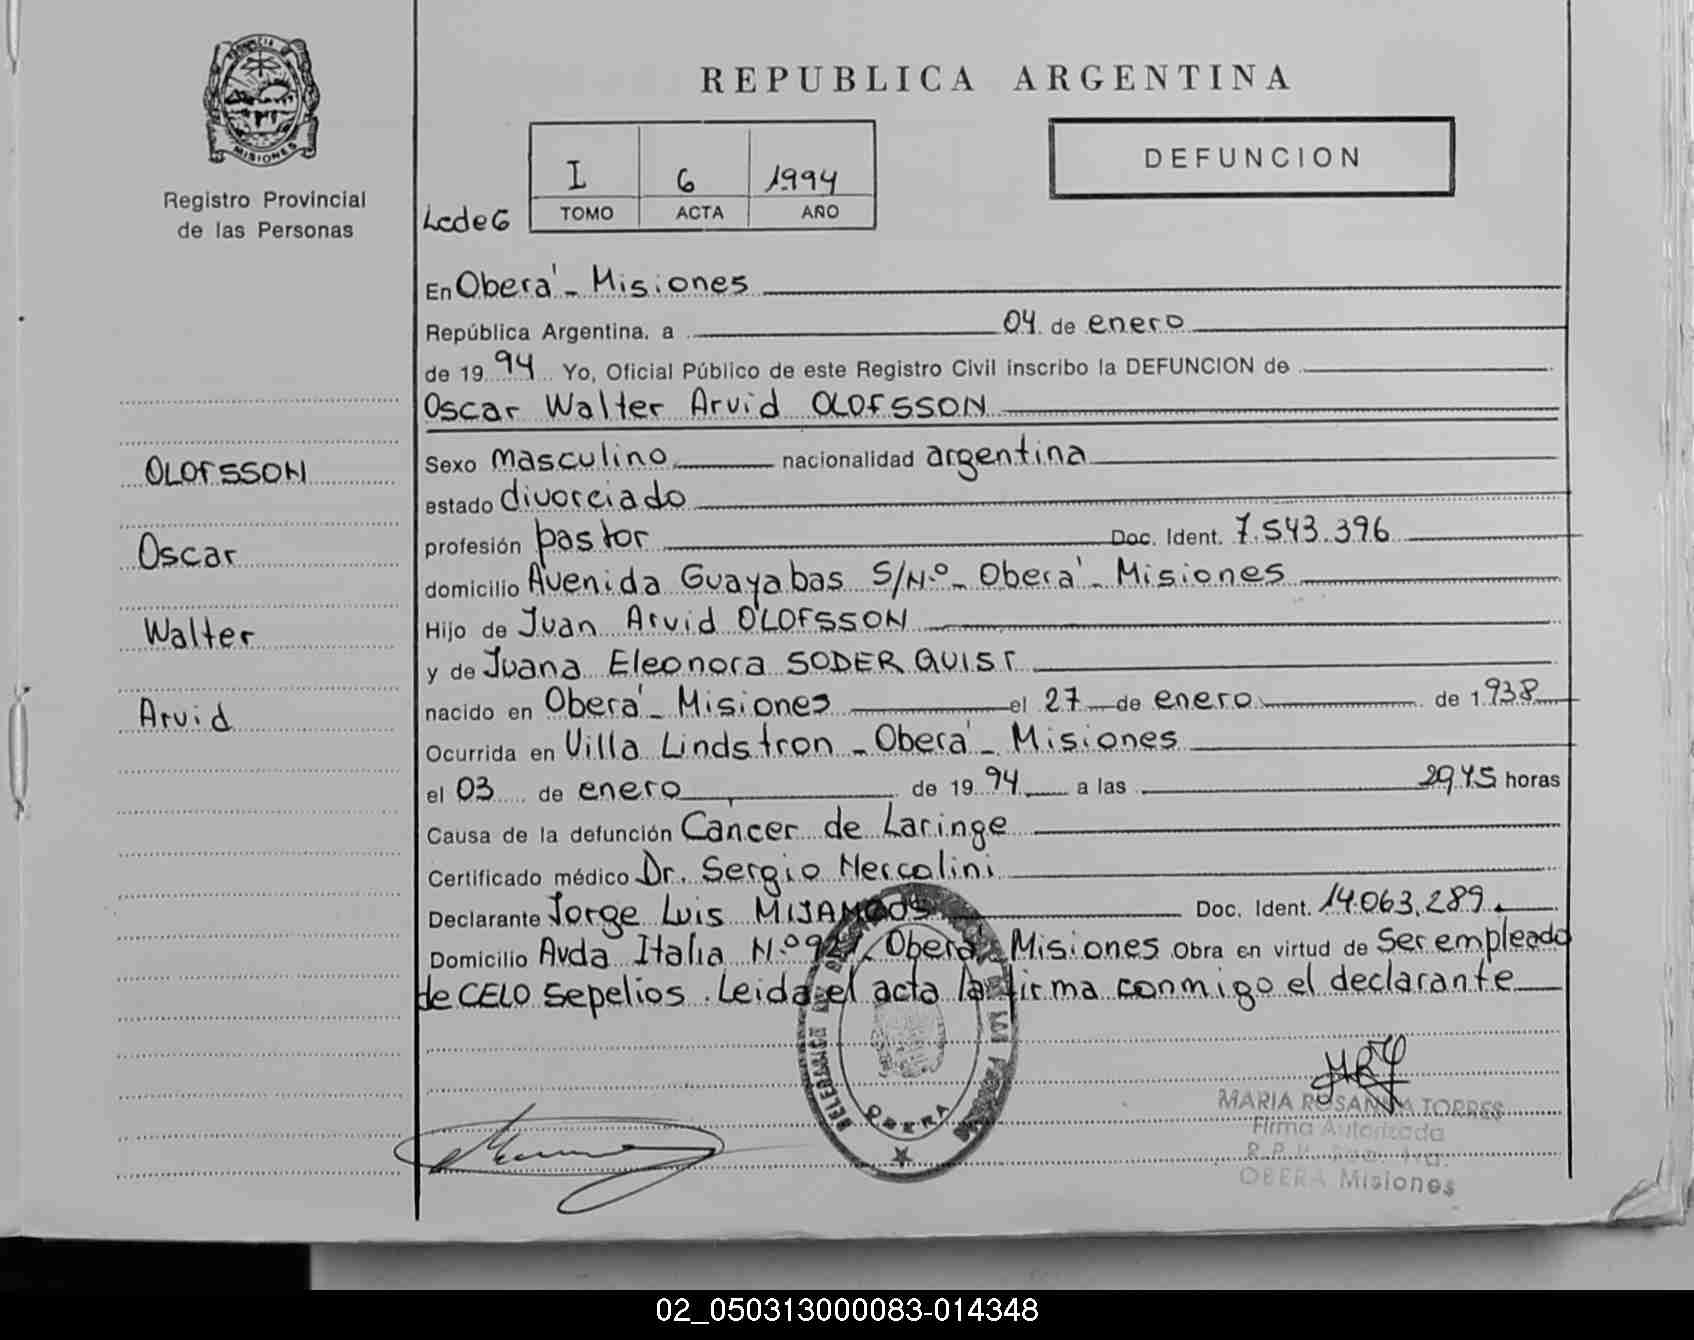 PROVINCIA DE
MISIONES
Registro Provincial
de las Personas
OLOFSSON
Oscar
Walter
Arvid
REPUBLICA ARGENTINA
I 6 1994
TOMO ACTA AÑO
DEFUNCION
En Oberá - Misiones
República Argentina, a 04 de enero
de 19 94 Yo, Oficial Público de este Registro Civil inscribo la DEFUNCION de
Oscar Walter Arvid OLOFSSON
Sexo masculino nacionalidad argentina
estado divorciado
profesión pastor Doc. Ident. 7.543.396
domicilio Avenida Guayabas S/Nº - Oberá - Misiones
Hijo de Juan Arvid OLOFSSON
y de Juana Eleonora SODERQUIST
nacido en Oberá - Misiones el 27 de enero de 1938
Ocurrida en Villa Lindstron - Oberá - Misiones
el 03 de enero de 19 94 a las horas
Causa de la defunción Cancer de Laringe
Certificado médico Dr. Sergio Mercolini
Declarante Jorge Luis Doc. Ident. 14.063.289
Domicilio Avda Italia Nº Oberá Misiones Obra en virtud de ser empleado
de CELO sepelios. Leida el acta la firma conmigo el declarante
OBERA
MARIA ROSANNA TORRES
Firma Autorizada
OBERA Misiones
02_050313000083-014348